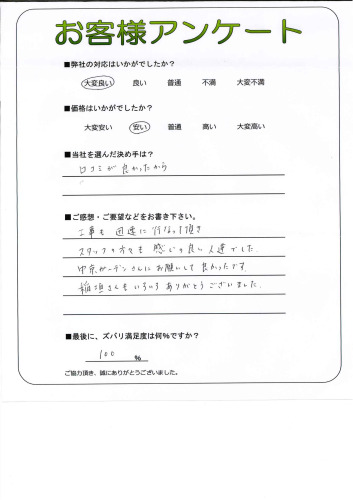 お客様アンケート
■弊社の対応はいかがでしたか？
大変良い 良い 普通 不満 大変不満
■価格はいかがでしたか？
大変安い 安い 普通 高い 大変高い
■当社を選んだ決め手は？
口コミが良かったから
■ご感想・ご要望などをお書き下さい。
工事も迅速に行なって頂き
スタッフの方々も感じの良い人達でした。
中京ガーデンさんにお願いして良かったです。
稲垣さんもいろいろありがとうございました。
■最後に、ズバリ満足度は何%ですか？
100 %
ご協力頂き、誠にありがとうございました。